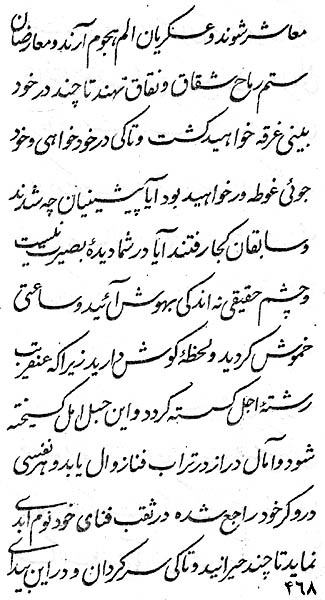 معاشر شوند و عسکریان الم هجوم آرند و معارضان
ستم رماح شقاق و نفاق نهند تا چند در خود
بینی غرقه خواهید گشت و تا کی در خود خواهی و خود
جوئی غوطه ور خواهید بود آیا پیشینیان چه شدند
و سابقان کجا رفتند آیا در شما دیدهٔ بصیرت نیست
و چشم حقیقی نه اندکی بهوش آئید و ساعتی
خموش گردید و لحظهٔ گوش دارید زیرا که عنقریب
رشتهٔ اجل گسسته گردد و این حبل امل گسیخته
شود و آمال دراز در تراب فنا زوال یابد و هر نفسی
در وکر خود راجع شده در ثقب فنای خود نوم ابدی
نماید تا چند حیرانید و تا کی سرگردان و در این بیدای
۴۶۸